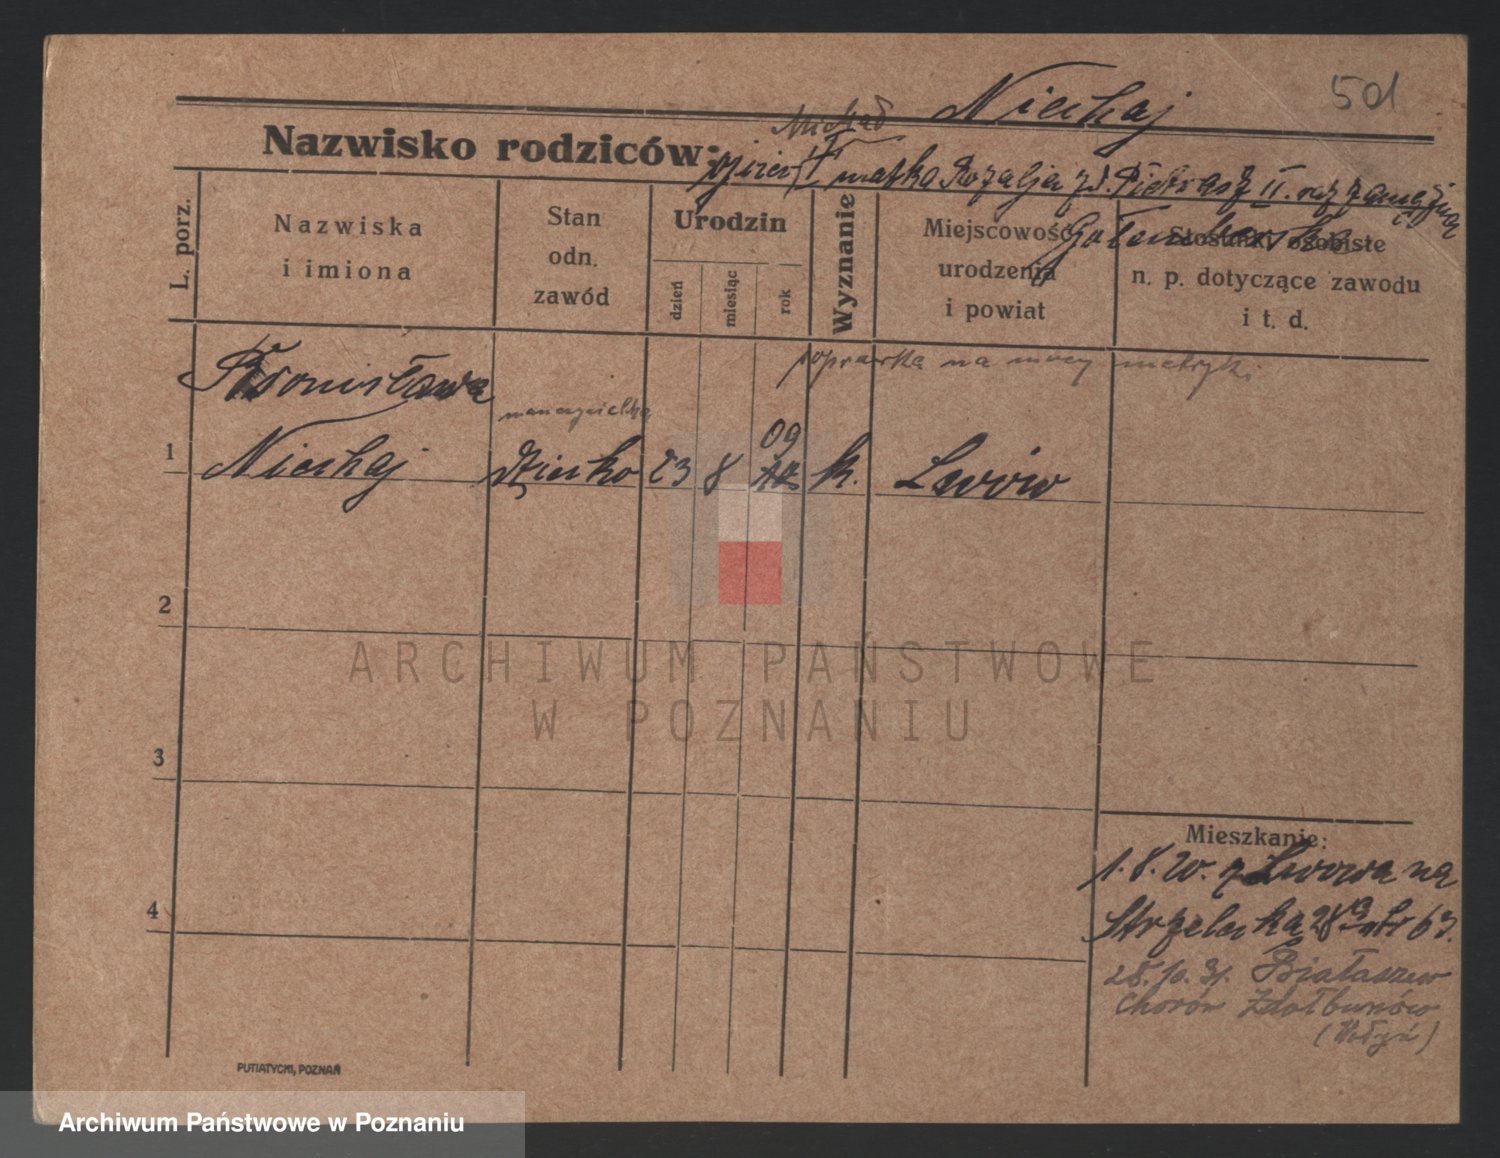 Niechaj
501
Michał
Nazwisko rodziców:
ojciec † matka Rozalja zd. Pietrasz II. raz zamężna
L. porz.
Nazwiska
i imiona
Stan
odn.
zawód
Urodzin
dzień
miesiąc
rok
Wyznanie
Miejscowość
urodzenia
i powiat
Stosunki osobiste
n. p. dotyczące zawodu
i t. d.
poprawka na mocy metryki
Bronisława
nauczycielka
09
1 Niechaj dziecko 23 8 k. Lwów
2
3
4
Mieszkanie:
1.8.20. z Lwowa na
Strzelecka 28
28.10.31. Białaszew
Chorów Zdołbunów
(Wołyń)
PUTIATYCKI, POZNAŃ
ARCHIWUM PAŃSTWOWE
W POZNANIU
Archiwum Państwowe w Poznaniu